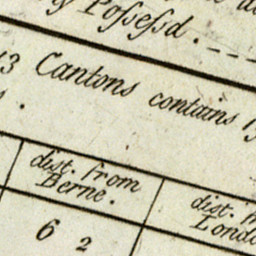 Poſſeſsd.
13 Cantons contains
dist. from
Berne.
dist.
6 2